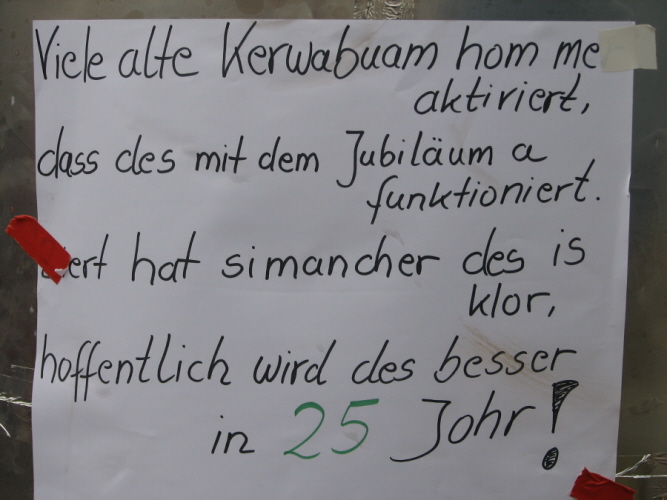 Viele alte Kerwabuam hom me
aktiviert,
dass des mit dem Jubiläum a
funktioniert.
hat simancher des is
klor,
hoffentlich wird des besser
in 25 Johr!